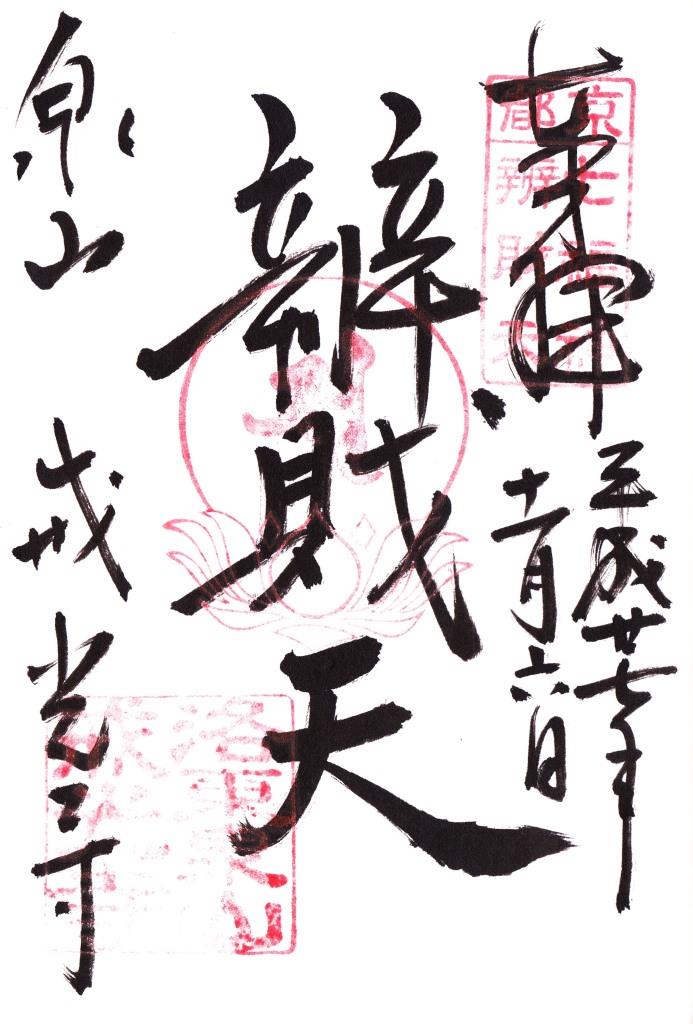 奉拝
平成廿七年
十一月六日
京都
七福神
辨財天
辨財天
泉山 戒光寺